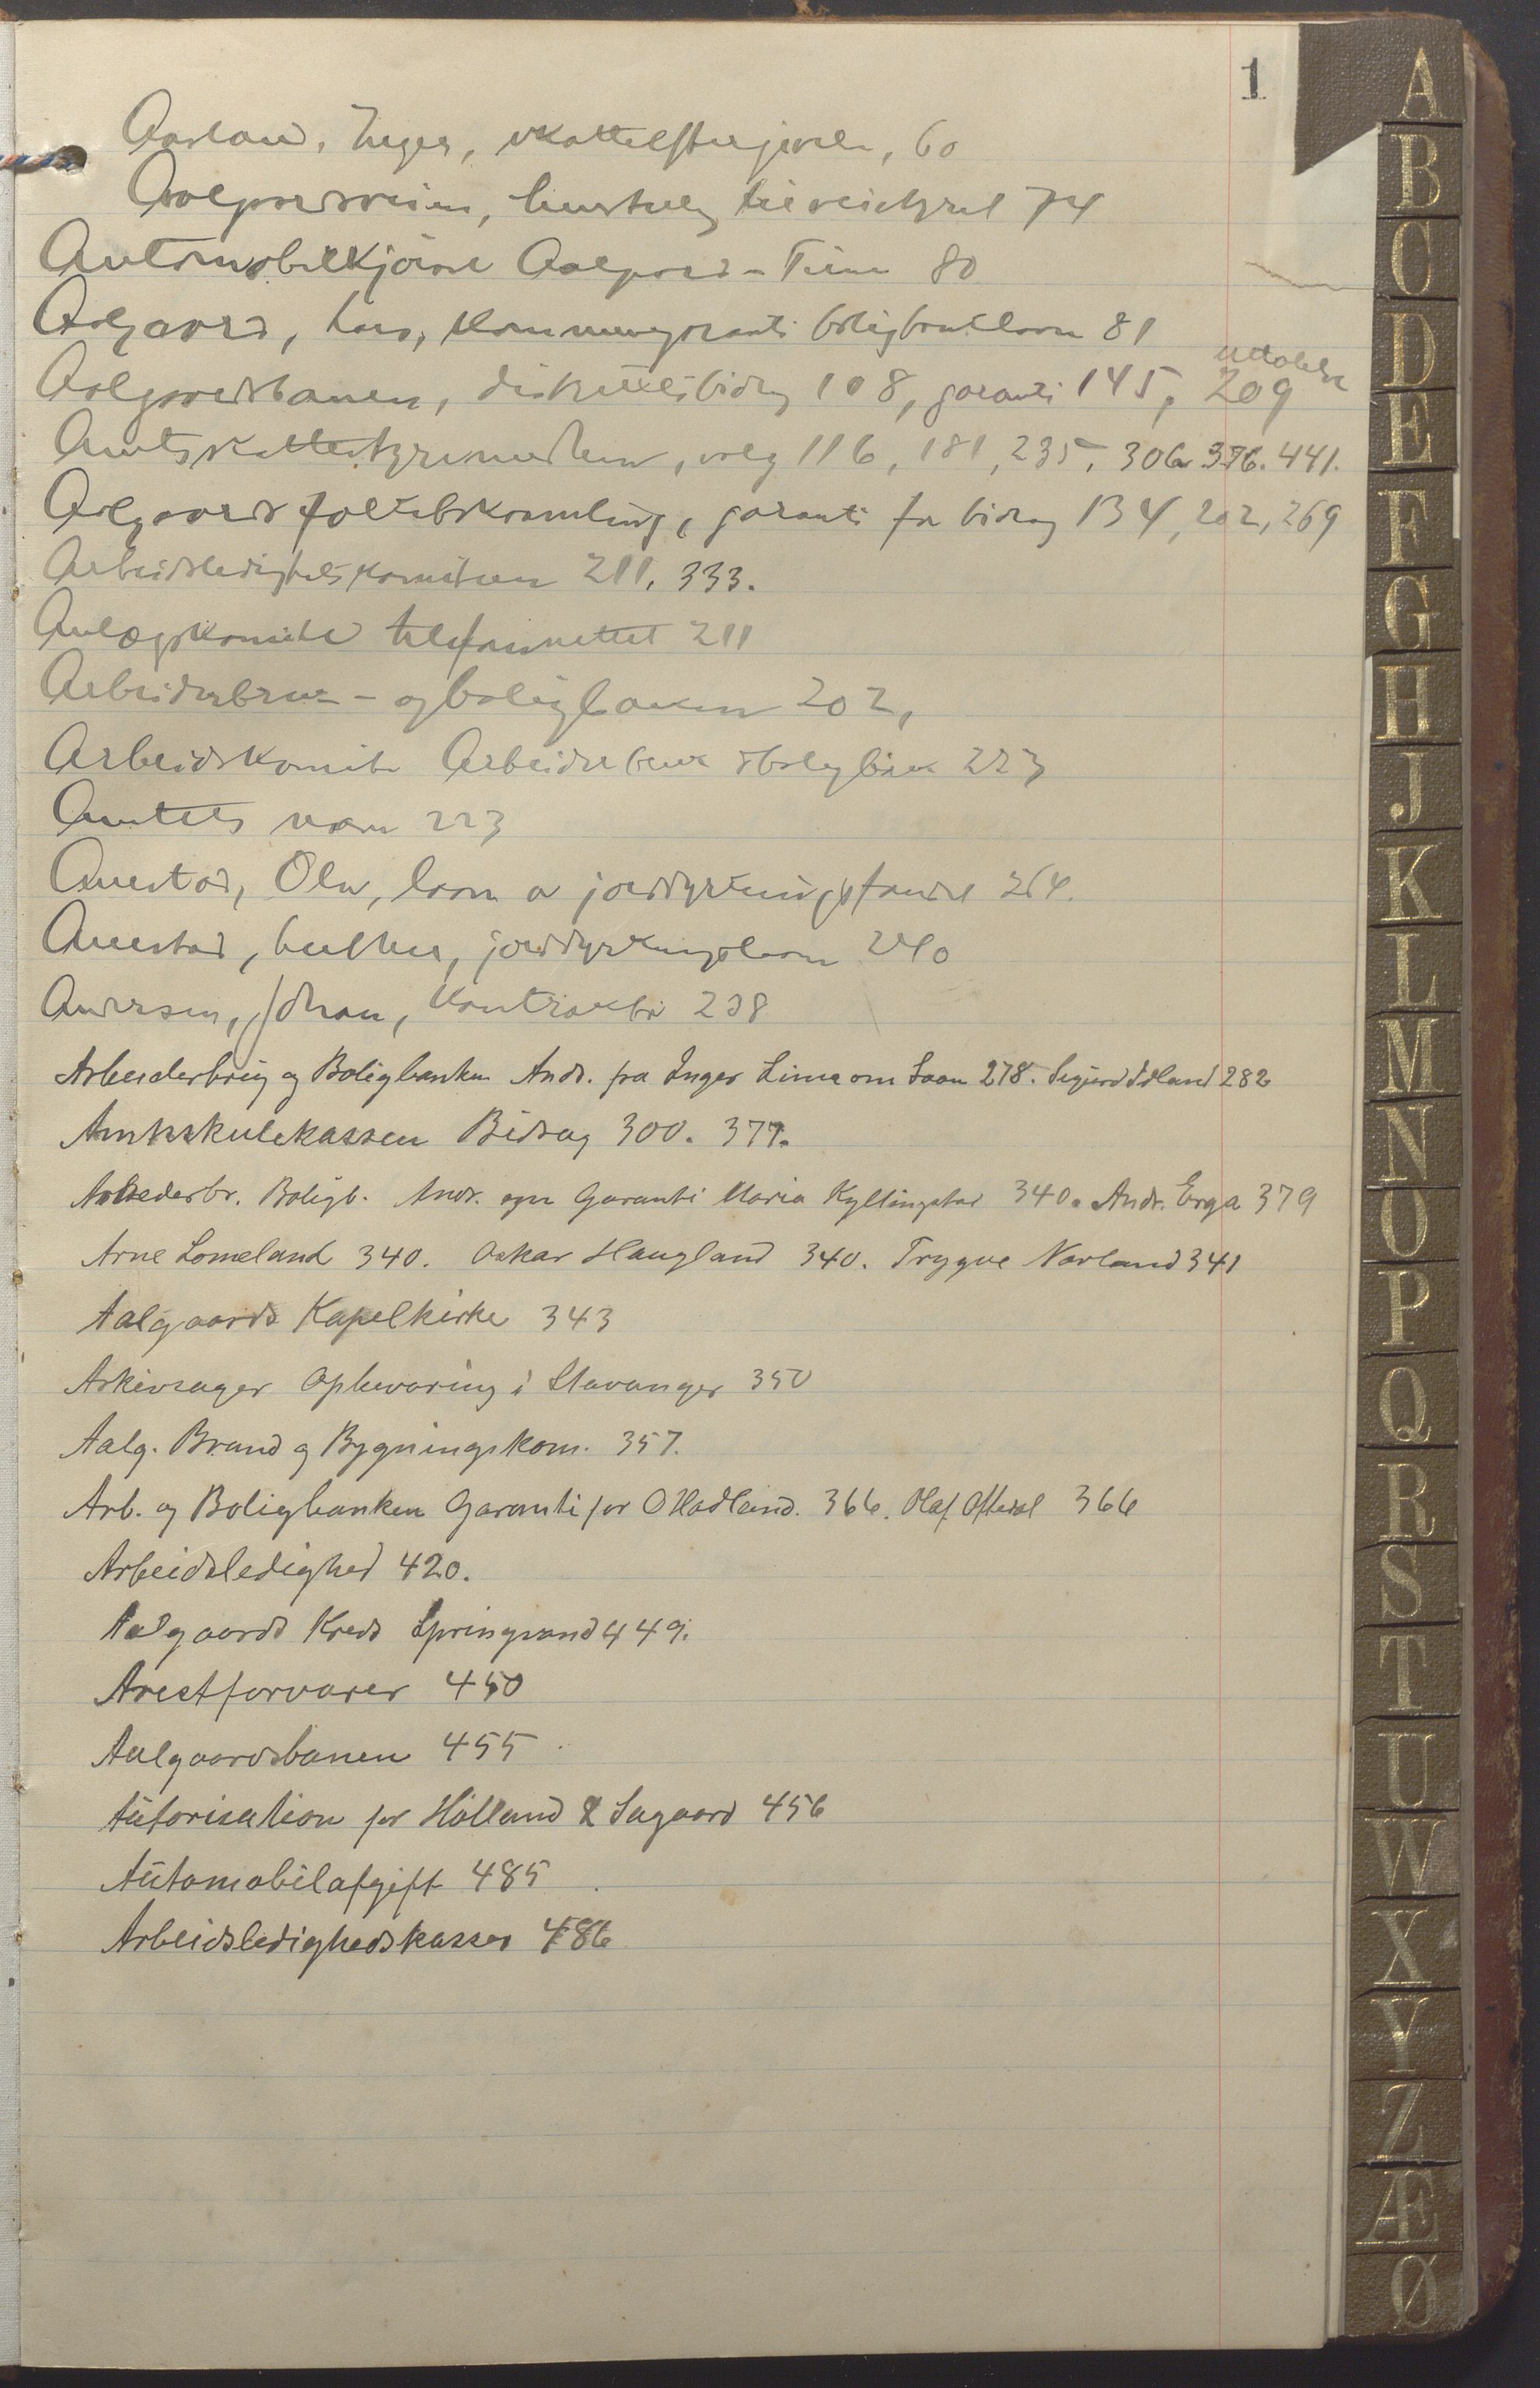 1
Aarland, Inger, skatteeftergivelse, 60
Aalgaardsveien, henstilling til veistyret 74
Automobilkjørsel Aalgaard - Time 80
Aalgaard, Lars, kommunegaranti boligbruklaan 81
Aalgaardsbanen, distriktsbidrag 108, garanti 145, uttalelse 209
Amtsskattestyremedlem, valg 116, 181, 235, 306. 376. 441.
Aalgaards folkeboksamling, garanti for bidrag 134, 202, 269
Arbeidsledighetskomiteen 211, 333.
Anlægskomite telefonnettet 211
Arbeiderbruk- og boligbanken 202,
Arbeidskomite Arbeiderbruk &boligbank 223
Amtets 223
Auestad, Ola, laan a jorddyrkningsfondet 264.
Auestad, jorddyrkningslaan 240
Andersen, Johan, 238
Arbeiderbrug og Boligbanken Andr. fra Inger Lima om Laan 278. Sigurd Idland 282
Amtsskulekassen Bidrag 300. 377.
Arbeiderbr. Boligb. Andr. om Garanti Maria Kyllingstad 340. Andr. Erga 379
Arne Lomeland 340. Oskar Haugland 340. Trygve Norland 341
Aalgaards Kapelkirke 343
Arkivsager Opbevaring i Stavanger 350
Aalg. Brand og Bygningskom. 357.
Arb. og Boligbanken Garanti for O Hadland. 366. Olaf Oftedal 366
Arbeidsledighed 420.
Aalgaards Kreds Springvand 449.
Arestforvarer 450
Aalgaardsbanen 455
Autorisation for Hålland & Sagaard 456
Automobilafgift 485
Arbeidsledighedskasser 486
A
B
C
D
E
F
G
H
J
K
L
M
N
O
P
Q
R
S
T
U
W
X
Y
Z
Æ
Ø